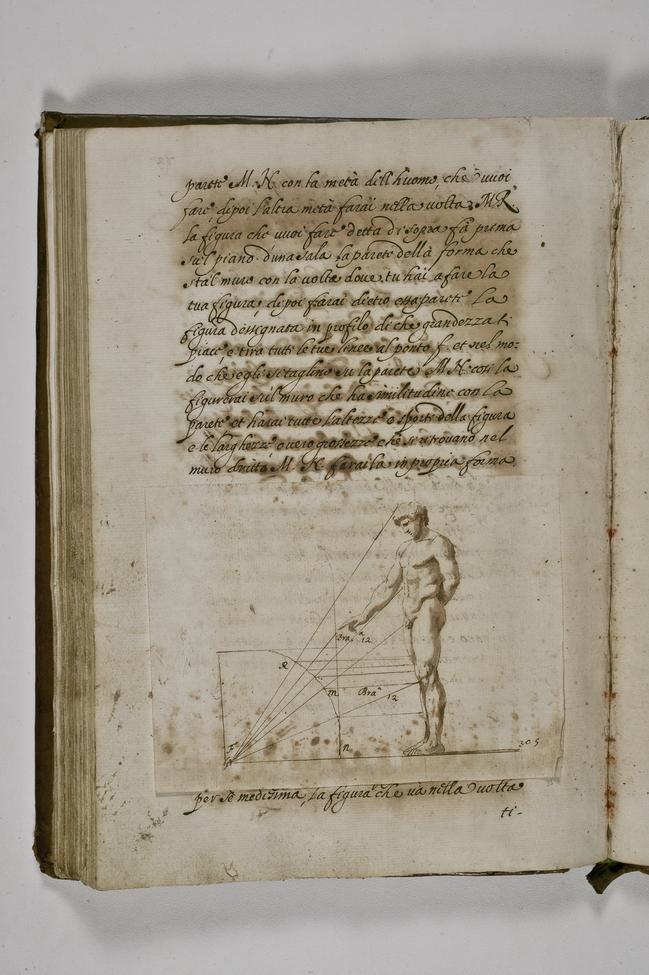 parete M.N. con la metà dell huomo, che vuoi
fare, di poi l'altra metà farai nella volta M.R
la figura che vuoi fare detta di sopra fà prima
su'l piano d'una sala la parete della forma che
stà'l muro con la volta dove tu hai a fare la
tua figura, di poi farai dietro essa parete La
figura dissegnata in profilo di che grandezza ti
piace, e tira tutte le tue linee al ponto f. et nel mo:
do che egli si tagliano su la parete M.N. cosi la
figurerai su'l muro che ha similitudine con la
parete et harai tutte l'altezze e sporti della figura
e le larghezze overo grossezze che si ritrovano nel
muro dritto M. N. farai la in propria forma
Bra^a 12
R
m Bra^a 12
F
n
305
per se medesima, La figura che và nella volta
ti-